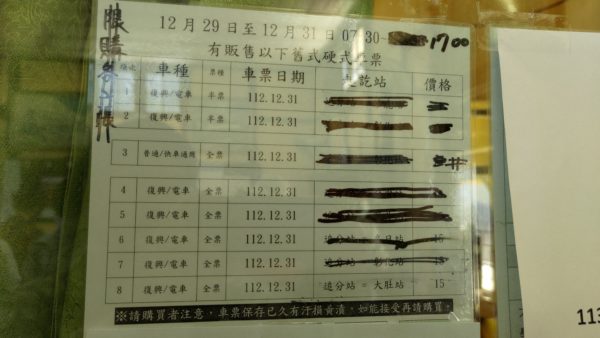 限購
12月29日至12月31日 07:30-1700
有販售以下舊式硬式車票
項次 車種 票種 車票日期 起訖站 價格
1 復興/電車 半票 112.12.31
2 復興/電車 半票 112.12.31
3 普通/快車通用 全票 112.12.31
4 復興/電車 全票 112.12.31
5 復興/電車 全票 112.12.31
6 復興/電車 全票 112.12.31 追分站
7 復興/電車 全票 112.12.31 追分站 = 彰化站 15
8 復興/電車 全票 112.12.31 追分站 = 大肚站 15
※請購買者注意,車票保存已久有汙損黃漬,如能接受再請購買。
113